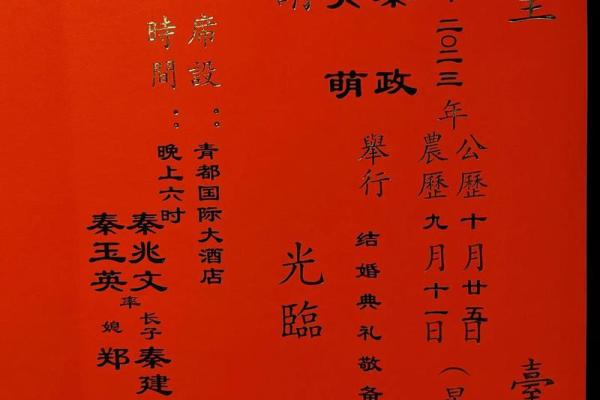 臺
二〇二三年
公歷十月廿五日（
農歷九月十一日
政
萌
舉行
結婚典礼敬備
光臨
席設：青都国际大酒店
時間：晚上六时
秦兆文
秦玉英
率
长子秦建
媳郑